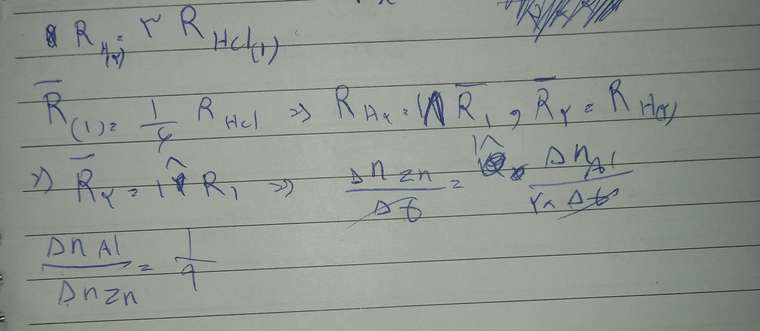 R H(۲) = ۳ R HCl(1)
R̄ (1) = 1/۶ R HCl ⇒ R H۲ = 1۸ R̄ 1 , R̄ ۲ = R H(۲)
⇒ R̄ ۲ = 1۸ R 1 ⇒ Δn Zn / Δt = 1۸ × Δn Al / ۲ × Δt
Δn Al / Δn Zn = 1/۹